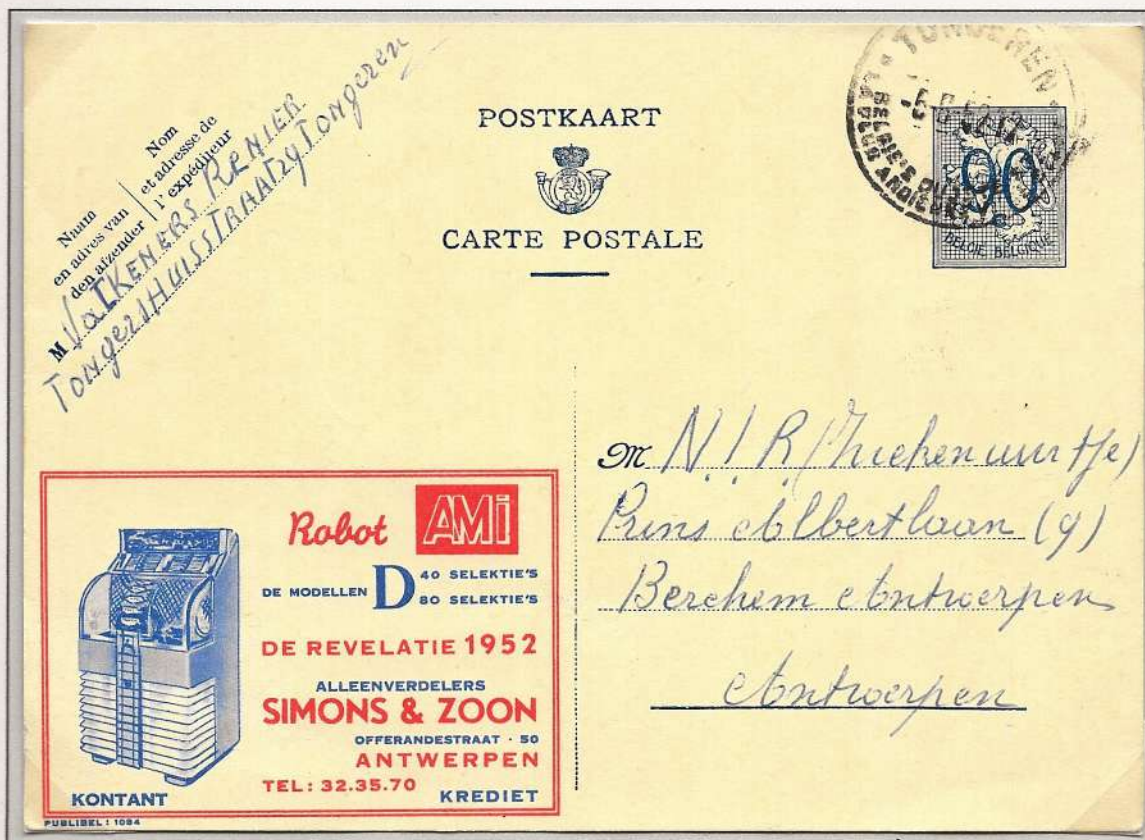 Naam
en adres van
den afzender
Nom
et adresse de
l'expéditeur
M VaLKENERS RENIER
TongersHUISSTRAAT 27 Tongeren
POSTKAART
CARTE POSTALE
TONGEREN
BELGIE'S
LA PLUS ANCIENNE
90
C
BELGIE-BELGIQUE
M N.I.R (Ziekenuurtje)
Prins Albertlaan (9)
Berchem Antwerpen
Antwerpen
Robot AMi
DE MODELLEN D 40 SELEKTIE'S
80 SELEKTIE'S
DE REVELATIE 1952
ALLEENVERDELERS
SIMONS & ZOON
OFFERANDESTRAAT - 50
ANTWERPEN
TEL: 32.35.70
KONTANT
KREDIET
PUBLIBEL: 1084